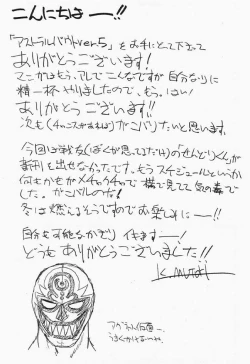 こんにちはー!!
「アストラルバウトver.5」をお手にとって下さって
ありがとうございます!
マンガはもう、アレでこんなですが自分なりに
精一杯やりましたので、もう。はい!
ありがとうございます!!
次も(チャンスがあれば)ガンバりたいと思います。
今回は秋友(ぼくが思ってるだけ)の「せんどりくん」が
新刊を出せなかったです。もうスケジュールというか
何もかもがメチャクチャで横で見てて気の毒で
した。ガンバルのだ!
冬は燃えるそうですのでお楽しみにー!!
自分も可能なかぎりイキますー!
どうもありがとうございました!!
アグネん仮面ー。
うまくかけないや。